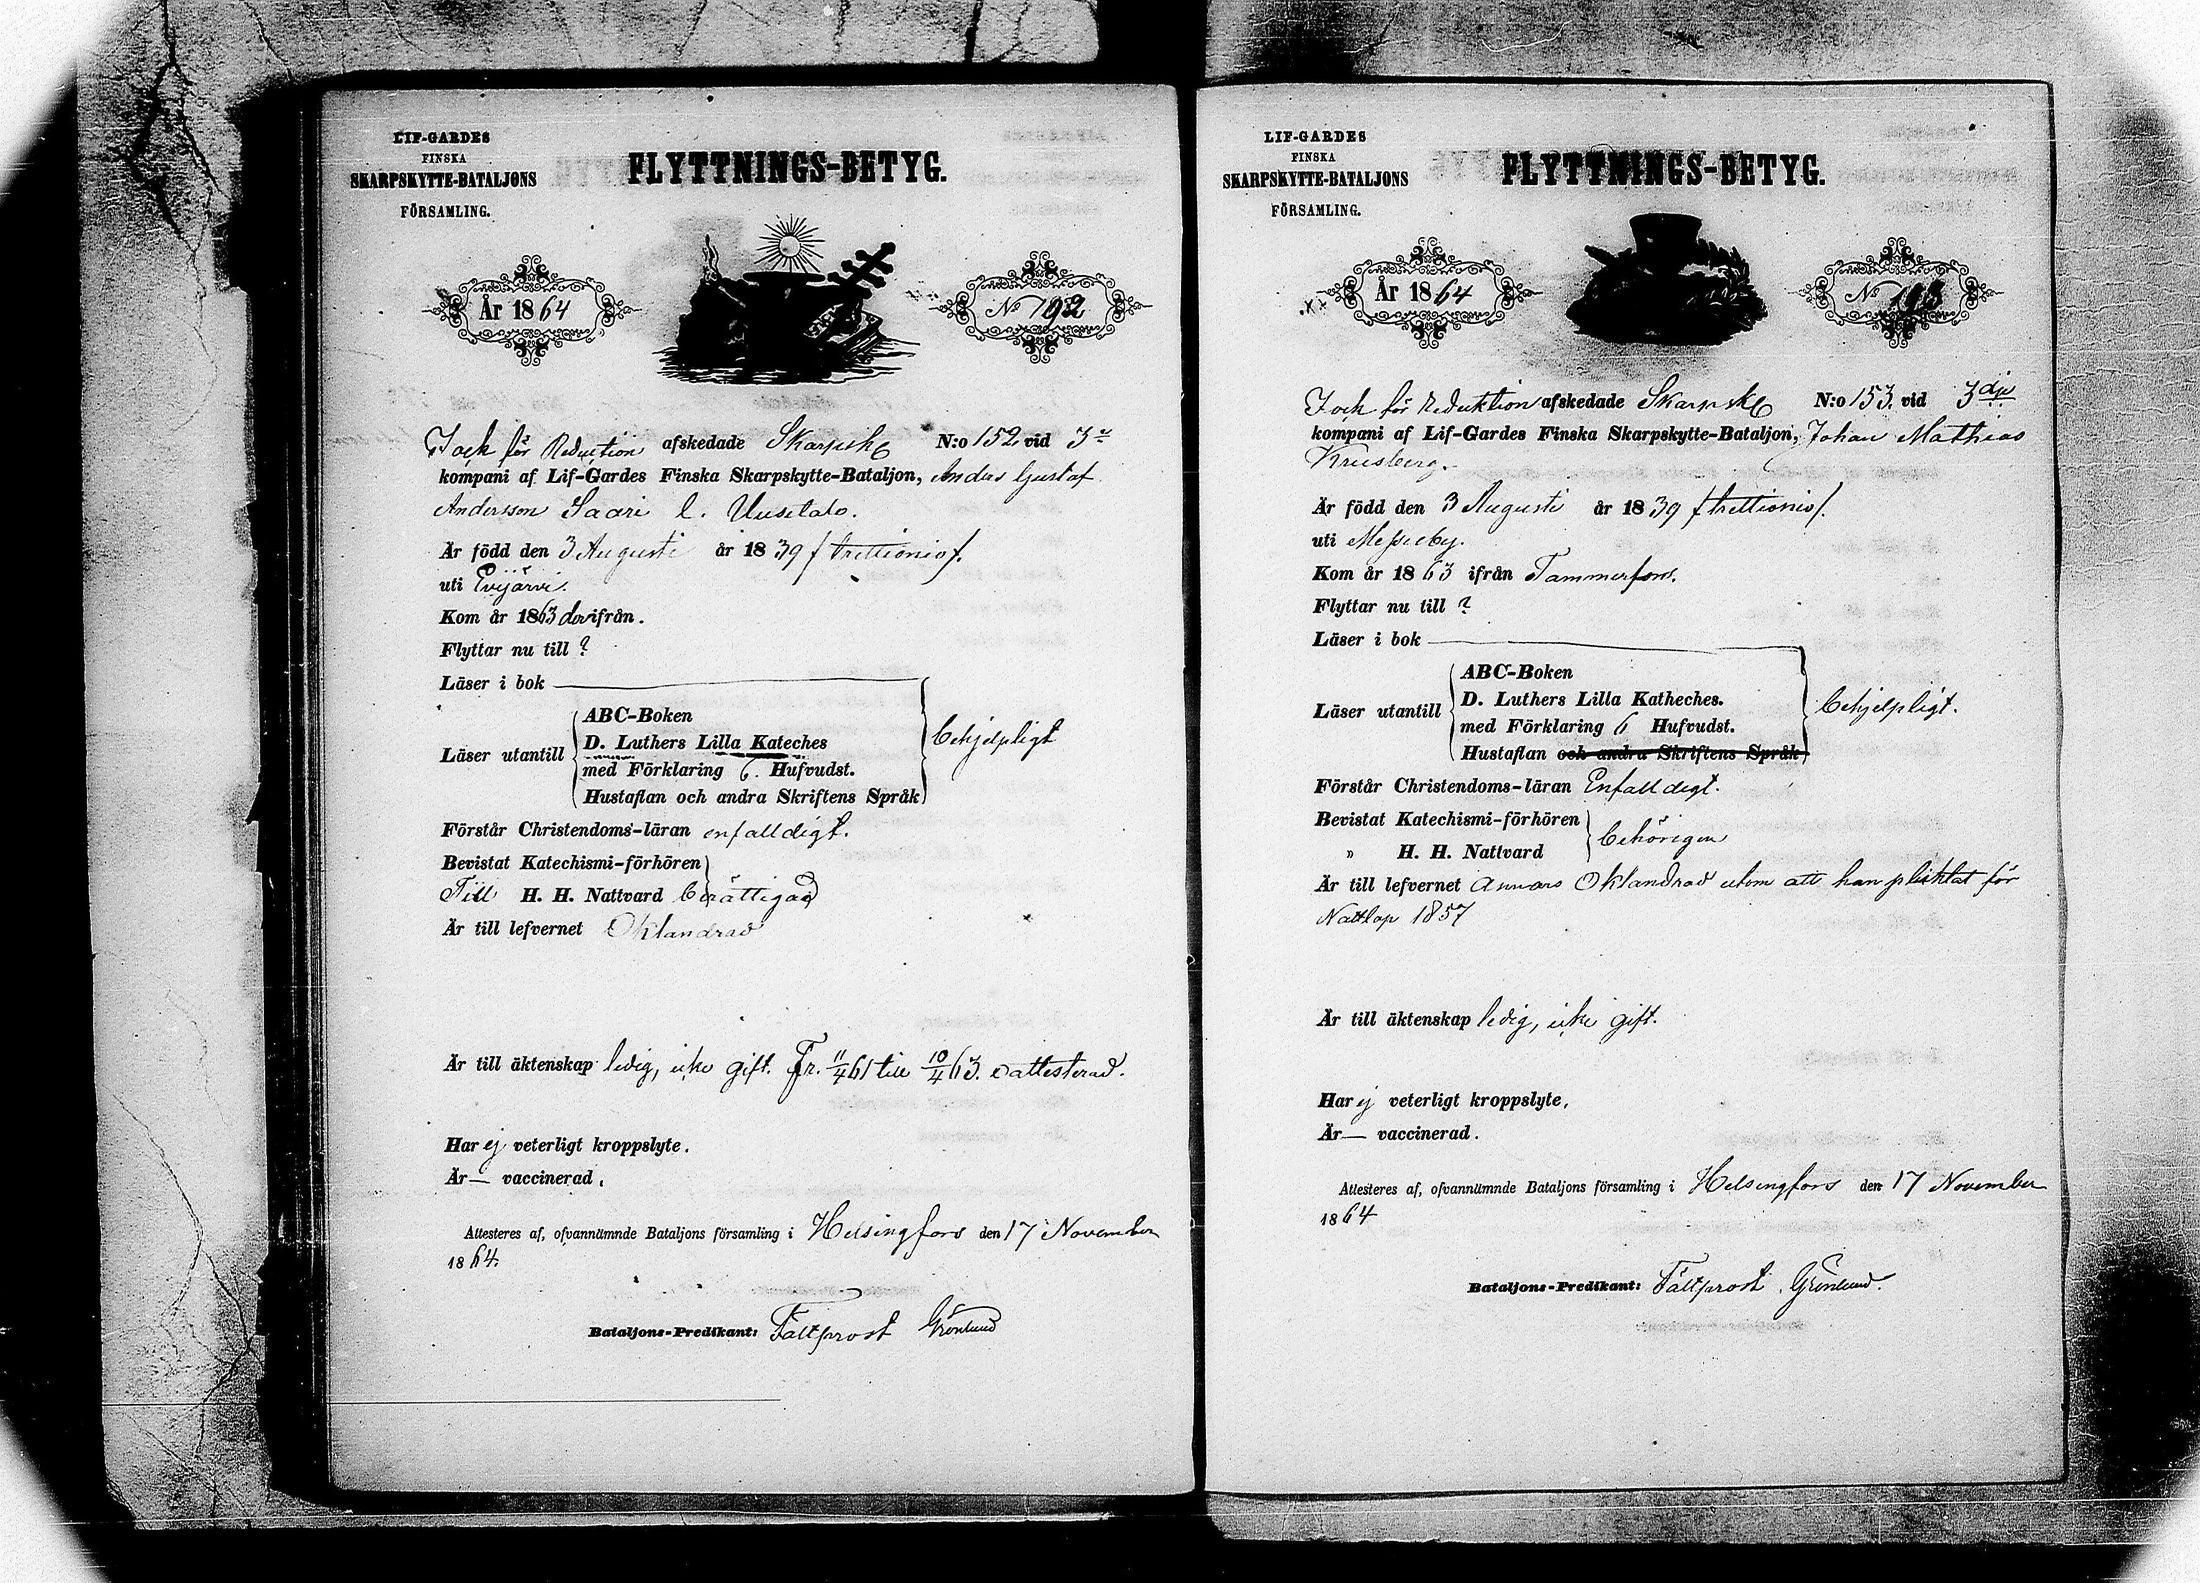 LIF-GARDES
FINSKA
SKARPSKYTTE-BATALJONS
FÖRSAMLING.
FLYTTNINGS-BETYG.
År 1864
No 192
för Reduction afskedade Skarpsk N:o 152 vid 3e
kompani af Lif-Gardes Finska Skarpskytte-Bataljon, Anders Gustaf
Andersson Saari l. Uusitalo.
Är född den 3 Augusti år 1839 /trettionio/.
uti Evijärvi.
Kom år 1863 derifrån.
Flyttar nu till ?
Läser i bok
Läser utantill
ABC-Boken
D. Luthers Lilla Kateches
med Förklaring 6. Hufvudst.
Hustaflan och andra Skriftens Språk
behjelpligt
Förstår Christendoms-läran enfalldigt.
Bevistat Katechismi-förhören
Till H. H. Nattvard berättigad
Är till lefvernet Oklandrad
Är till äktenskap ledig, icke gift. Fr. 11/4 61 till 10/4 63. oattesterad.
Har ej veterligt kroppslyte.
Är — vaccinerad.
Attesteres af, ofvannämnde Bataljons församling i Helsingfors den 17 November
1864.
Bataljons-Predikant: Fältprost Grönlund
LIF-GARDES
FINSKA
SKARPSKYTTE-BATALJONS
FÖRSAMLING.
FLYTTNINGS-BETYG.
År 1864
No
för Reduktion afskedade Skarpsk N:o 153. vid 3dje
kompani af Lif-Gardes Finska Skarpskytte-Bataljon, Johan Mathias
Är född den 3 Augusti år 1839 /trettionio/.
uti Messuby.
Kom år 1863 ifrån Tammerfors.
Flyttar nu till ?
Läser i bok
Läser utantill
ABC-Boken
D. Luthers Lilla Katheches.
med Förklaring 6 Hufvudst.
Hustaflan och andra Skriftens Språk
behjelpligt.
Förstår Christendoms-läran Enfalldigt.
Bevistat Katechismi-förhören
" H. H. Nattvard
behörigen
Är till lefvernet annars Oklandrad utom att han pliktat för
Nattlop 1857
Är till äktenskap ledig, icke gift.
Har ej veterligt kroppslyte.
Är — vaccinerad.
Attesteres af, ofvannämnde Bataljons församling i Helsingfors den 17 November
1864
Bataljons-Predikant: Fältprost Grönlund.